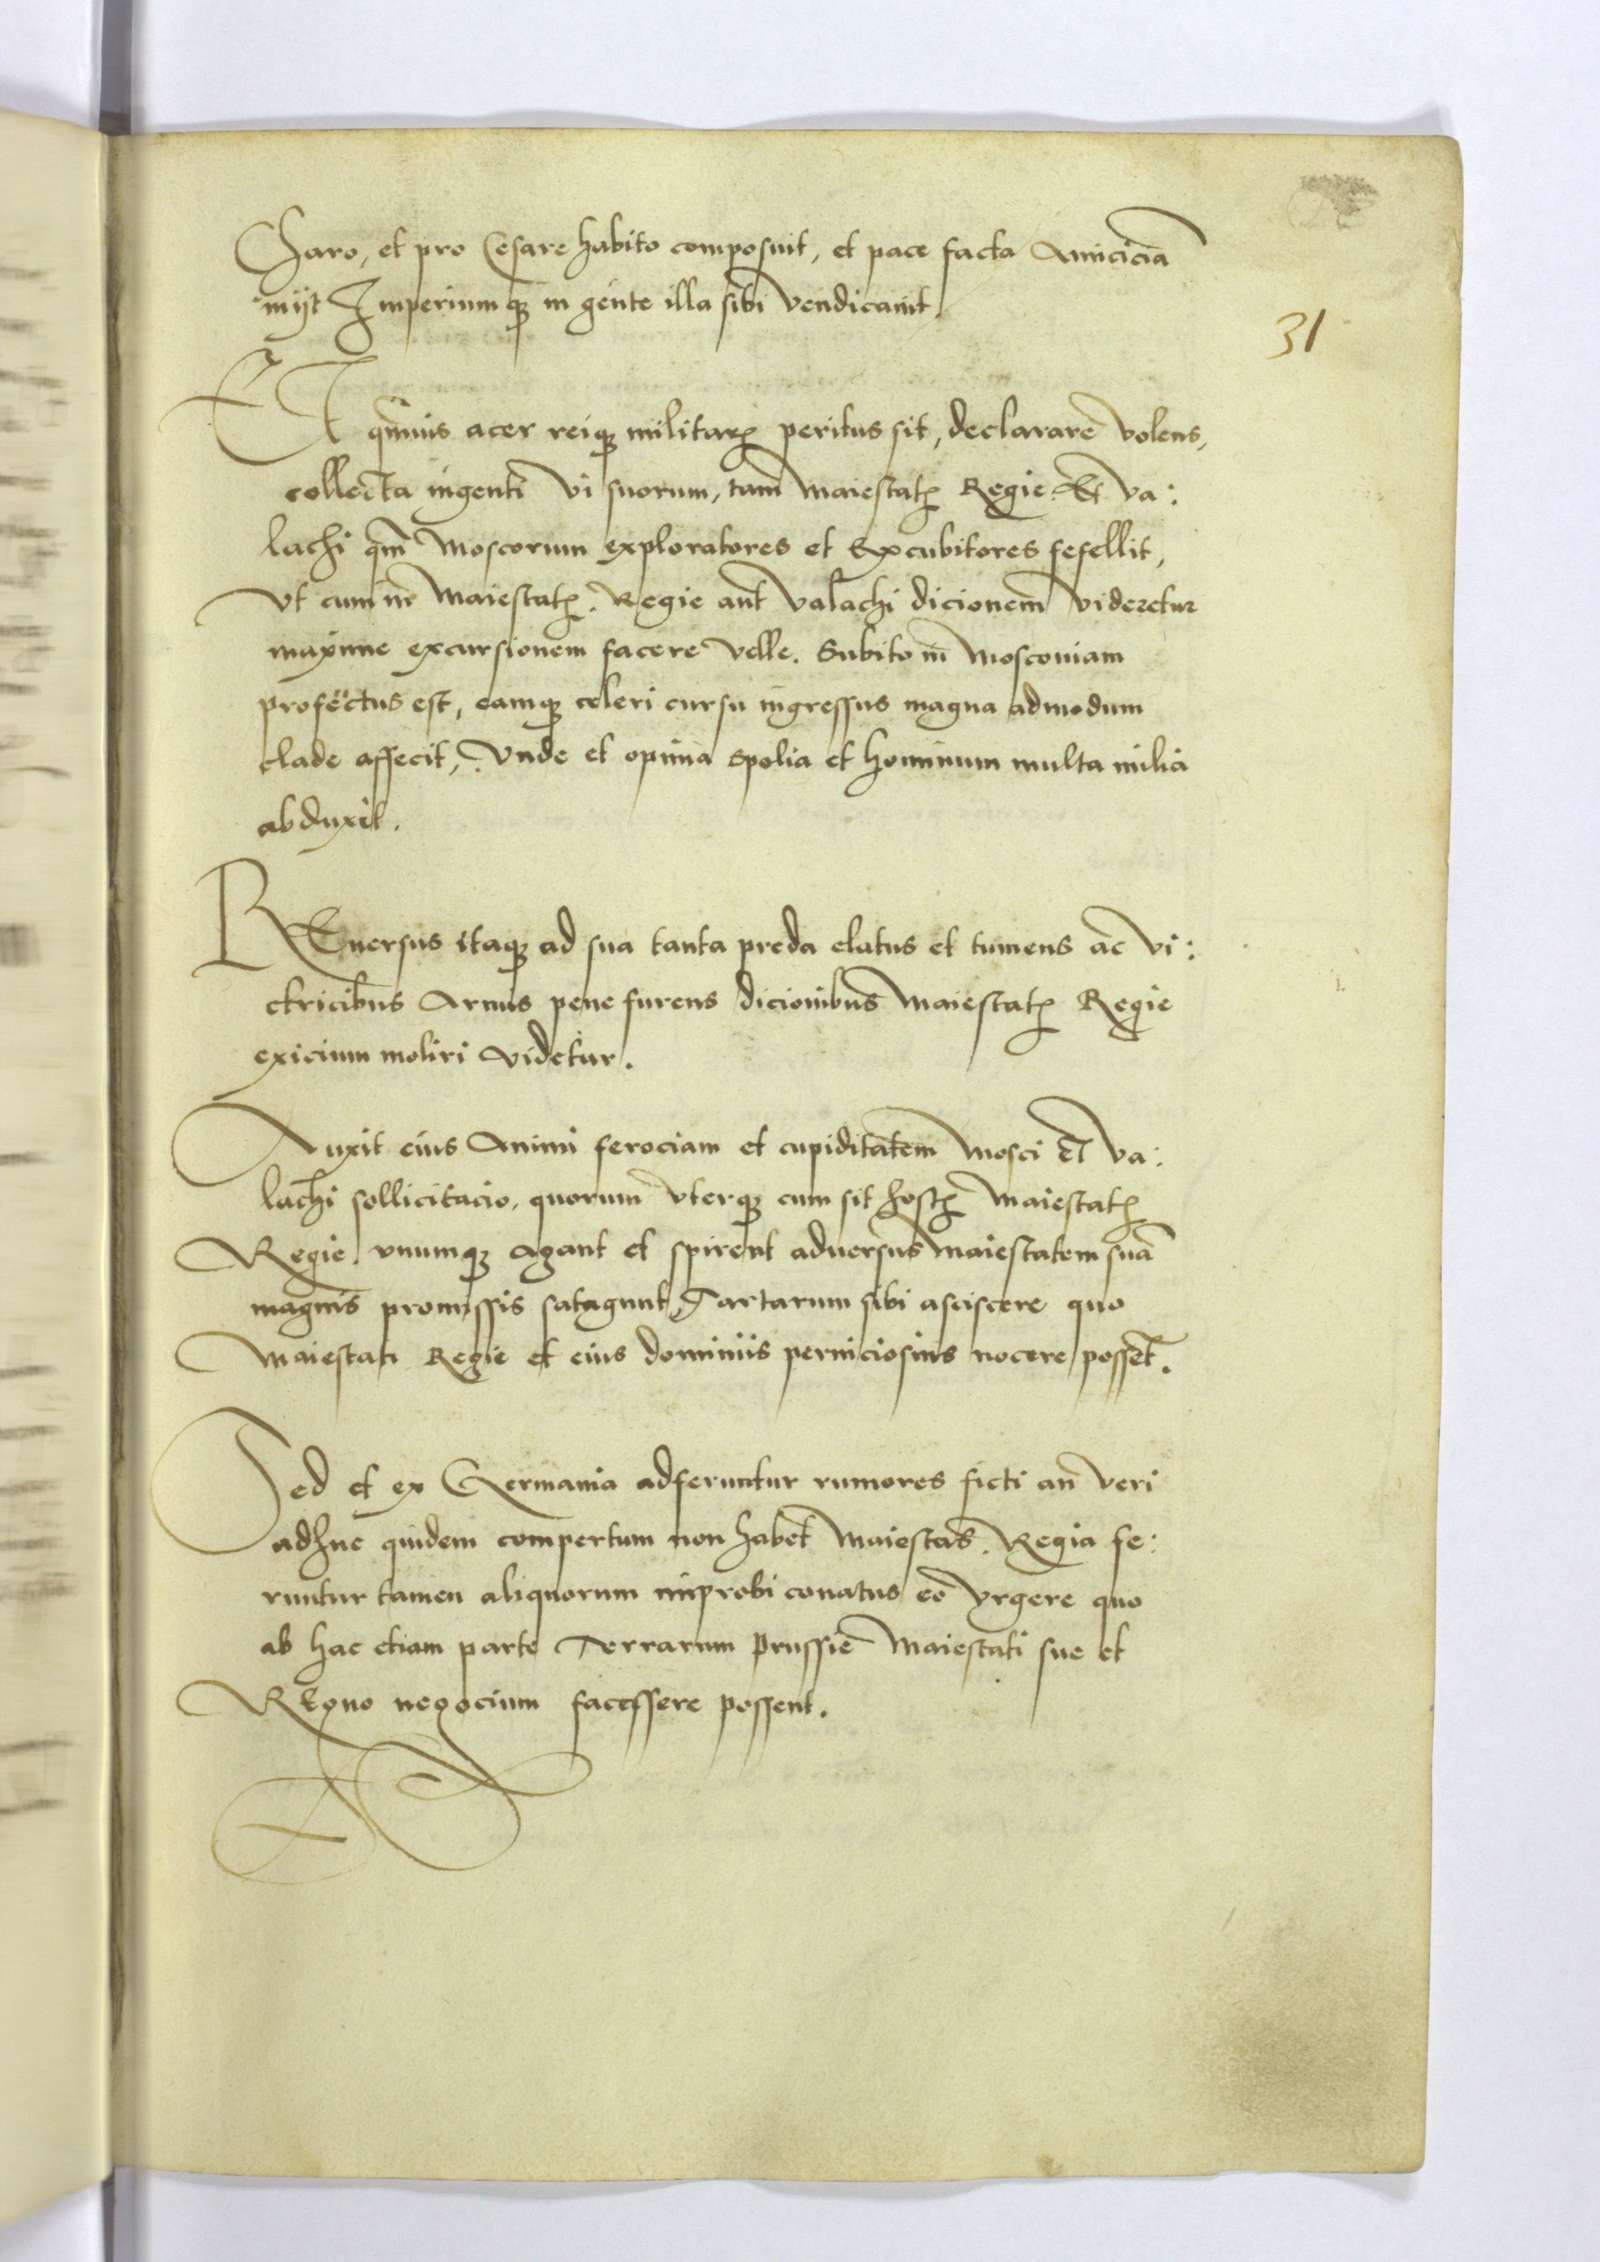 Charo, et pro Cesare habito composuit, et pace facta Amiciciā
inijt Imperiumqꝫ in gente illa sibi vendicauit.
31
Et acer reiqꝫ militarꝭ peritus sit, declarare volens,
collecta ingenti vi suorum, tam Maiestatꝭ Regie Et Va:
lachi qͫ Moscorum exploratores et Excubitores fefellit,
Vt cum in Maiestatꝭ Regie aut Valachi dicionem videretur
maxime excursionem facere velle. Subito in Mosconiam
profectus est, eamqꝫ celeri cursu ingressus magna admodum
clade affecit, Vnde et opima spolia et hominum multa milia
abduxit.
REuersus itaqꝫ ad sua tanta preda elatus et tumens ac vi:
ctricibus Armis pene furens dicionibus Maiestatꝭ Regie
exicium moliri videtur.
Auxit eius Animi ferociam et cupiditatem Mosci et Va:
lachi sollicitacio, quorum vterqꝫ cum sit hostꝭ Maiestatꝭ
Regie. vnumqꝫ Agant et spirent aduersus Maiestatem suā
magnis promissis satagunt Tartarum sibi asciscere quo
Maiestati Regie et eius dominiis perniciosius nocere possēt.
Sed et ex Germania adferuntur rumores ficti an veri
adhuc quidem compertum non habet Maiestas Regia fe:
runtur tamen aliquorum improbi conatus eo vrgere quo
ab hac etiam parte Terrarum Prussie Maiestati sue et
REgno negocium facessere possent.